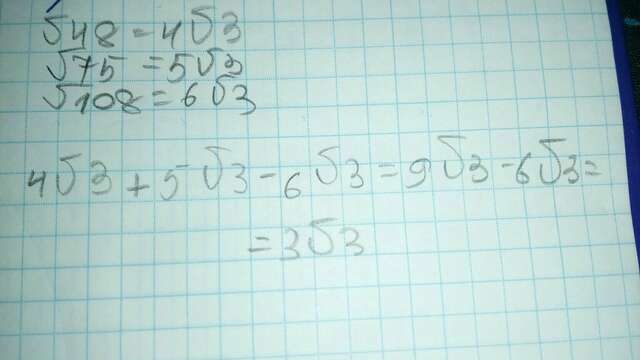 √48 = 4√3
√75 = 5√3
√108 = 6√3
4√3 + 5√3 - 6√3 = 9√3 - 6√3 =
= 3√3